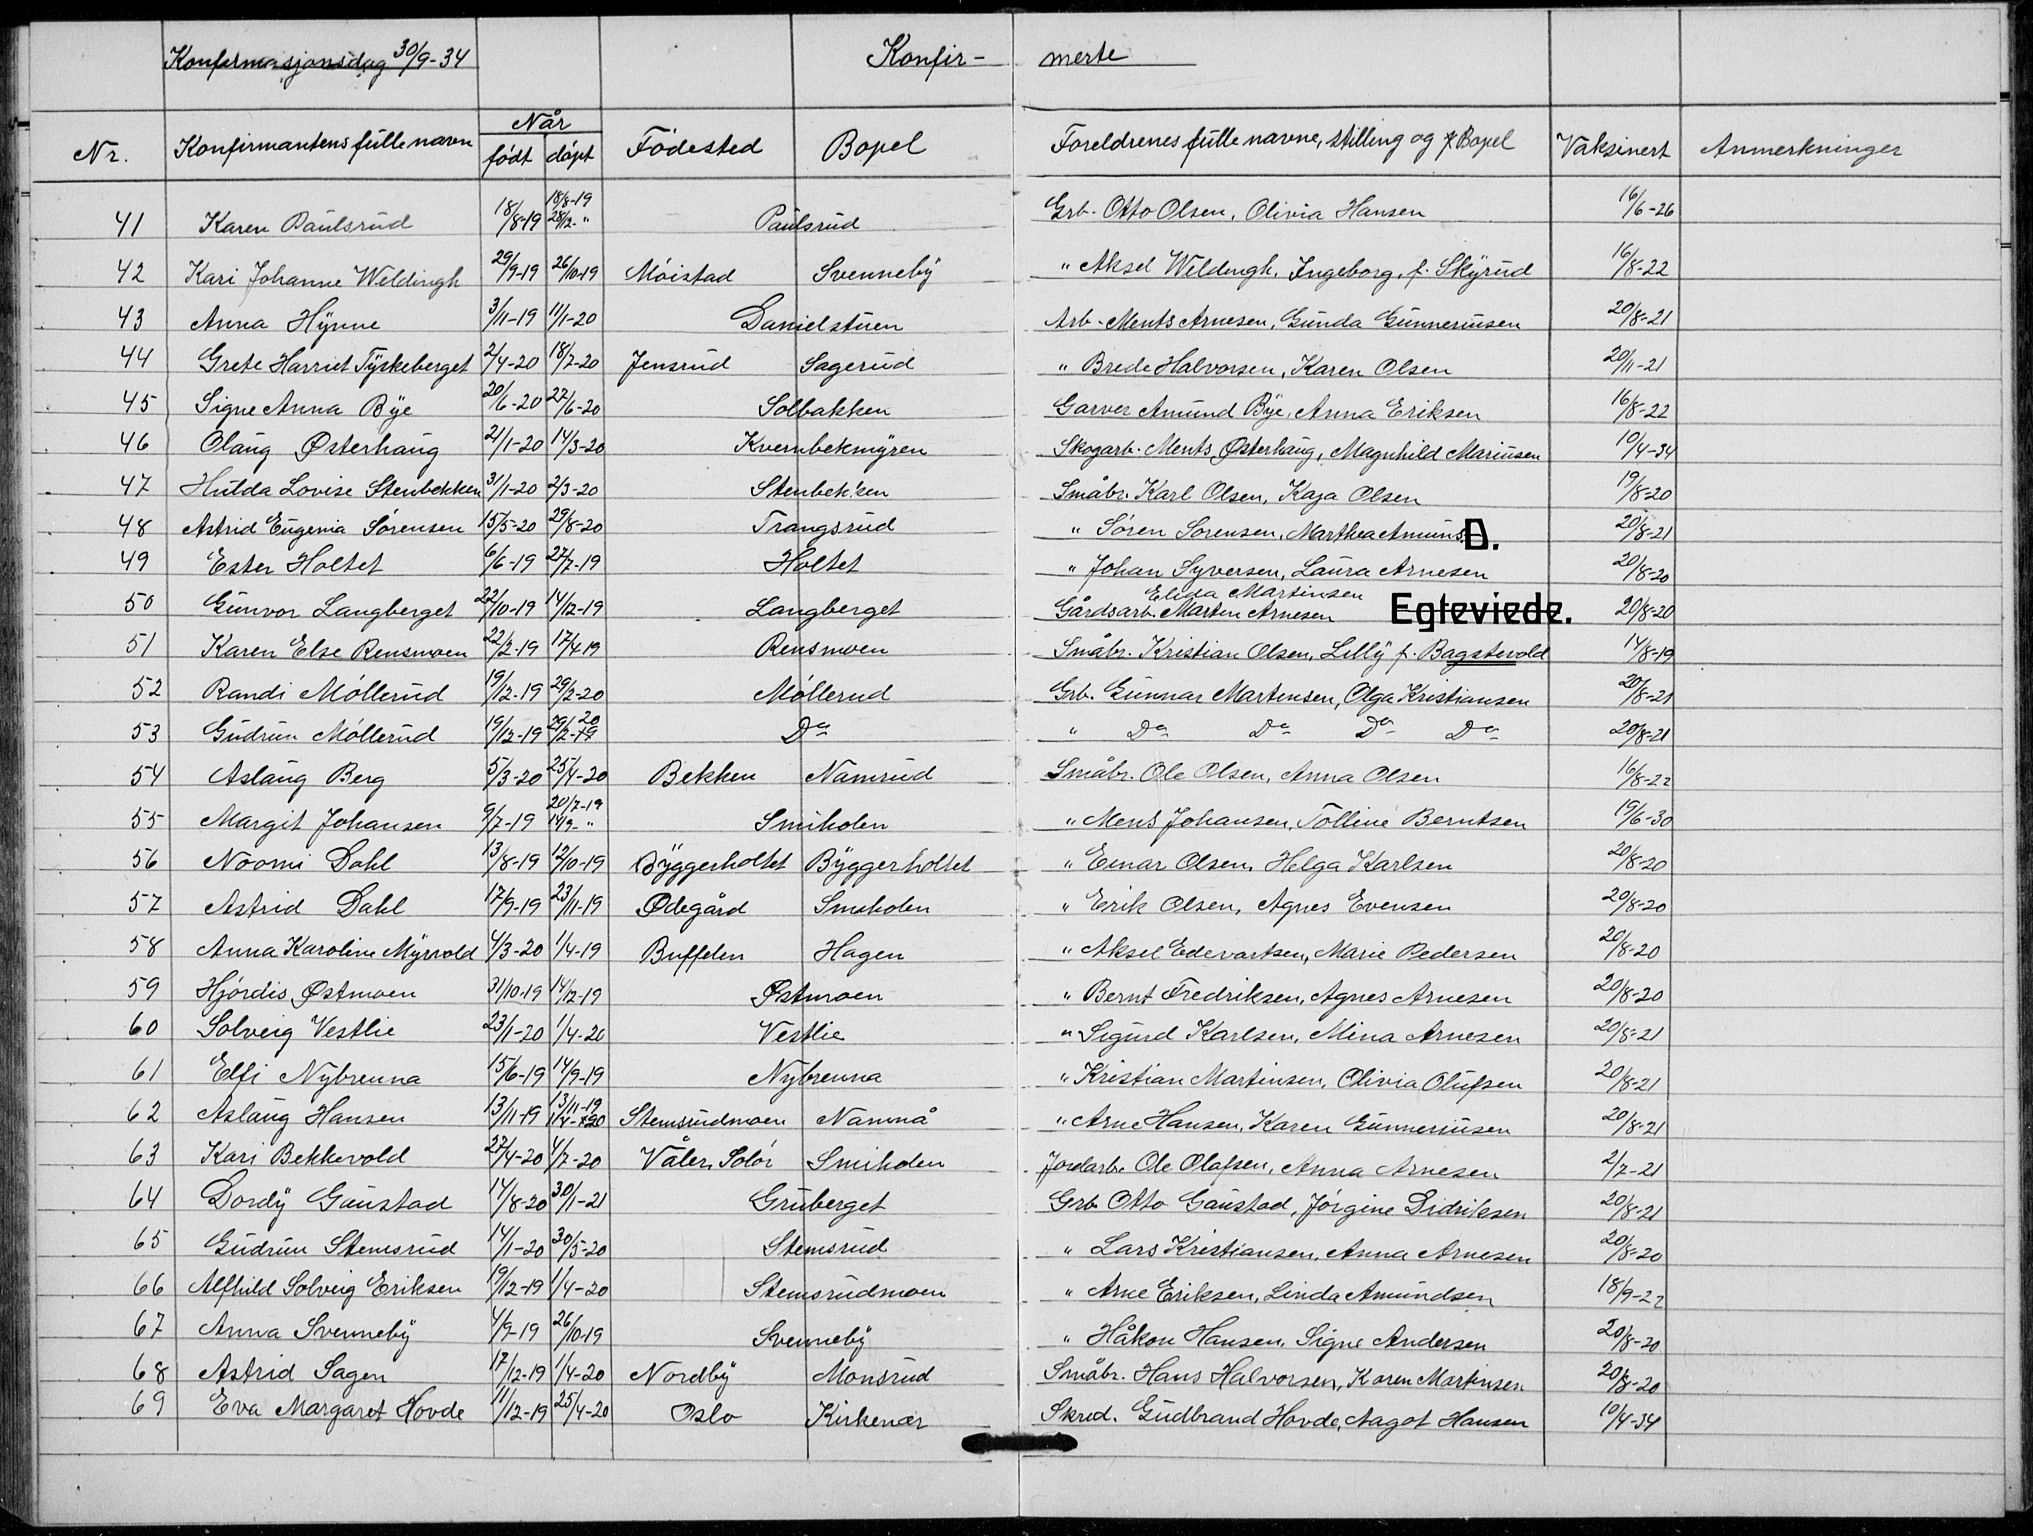 Konfirmasjonsdag 30/9-34 Konfir- merte
Nr. Konfirmantens fulle navn Når Födested Bopel Foreldrenes fulle navne, stilling og Bopel Vaksinert Anmerkninger
født döpt
41 Karen Paulsrud 18/8-19 18/8-19 28/12-" Paulsrud Grb. Otto Olsen, Olivia Hansen 16/6-26
42 Kari Johanne Weldingh 29/9-19 26/10-19 Möistad Svenneby " Aksel Weldingh, Ingeborg, f. Skyrud 16/8-22
43 Anna Hynne 3/11-19 11/1-20 Danielstuen Arb. Ments Arnesen, Gunda Gunneriusen 20/8-21
44 Grete Harriet Tyskeberget 2/4-20 18/7-20 Jensrud Sagerud " Brede Halvorsen, Karen Olsen 20/11-21
45 Signe Anna Bye 20/6-20 22/6-20 Solbakken Garver Amund Bye, Anna Eriksen 16/8-22
46 Olaug Østerhaug 21/1-20 14/3-20 Kvernbekmyren Skogarb. Ments Østerhaug, Magnhild Mariusen 10/4-34
47 Hulda Lovise Stenbekken 31/1-20 2/3-20 Stenbekken Småbr. Karl Olsen, Kaja Olsen 19/8-20
48 Astrid Eugenia Sörensen 15/5-20 29/8-20 Trangsrud " Sören Sorensen, Marthea Amuns. D. 20/8-21
49 Ester Holtet 6/6-19 27/7-19 Holtet " Johan Syversen, Laura Arnesen 20/8-20
50 Gunvor Langberget 22/10-19 14/12-19 Langberget Gårdsarb. Marten Arnesen Elida Martinsen Egleviede. 20/8-20
51 Karen Else Rensmoen 22/2-19 17/4-19 Rensmoen Småbr. Kristian Olsen, Lilly f. Bagstevold 14/8-19
52 Randi Möllerud 19/12-19 29/2-20 Möllerud Grb. Gunnar Martensen, Olga Kristiansen 20/8-21
53 Gudrun Möllerud 19/12-19 29/2-19 20 Do " Do Do Do Do 20/8-21
54 Aslaug Berg 5/3-20 25/4-20 Bekken Namrud Småbr. Ole Olsen, Anna Olsen 16/8-22
55 Margit Johansen 9/7-19 20/7-19 14/9-" Smiholen " Ments Johansen, Tolline Berntsen 19/6-30
56 Noomi Dahl 13/8-19 12/10-19 Byggerholtet Byggerholtet " Einar Olsen, Helga Karlsen 20/8-20
57 Astrid Dahl 17/9-19 23/11-19 Ødegård Smiholen " Erik Olsen, Agnes Evensen 20/8-20
58 Anna Karoline Myrvold 4/3-20 1/4-19 Buffelen Hagen " Aksel Edevartsen, Marie Pedersen 20/8-20
59 Hjördis Østmoen 31/10-19 14/12-19 Østmoen " Bernt Fredriksen, Agnes Arnesen 20/8-20
60 Solveig Vestlie 23/1-20 1/4-20 Vestlie " Sigurd Karlsen, Mina Arnesen 20/8-21
61 Elfi Nybrenna 15/6-19 14/9-19 Nybrenna " Kristian Martinsen, Olivia Olufsen 20/8-21
62 Aslaug Hansen 13/11-19 13/11-19 1/4-20 Stemsrudmoen Namnå " Arne Hansen, Karen Gunneriusen 20/8-21
63 Kari Bekkevold 27/4-20 4/7-20 Våler, Solör Smiholen Jordarb. Ole Olafsen, Anna Arnesen 2/7-21
64 Dordy Gaustad 14/8-20 30/1-21 Gruberget Grb Otto Gaustad, Jörgine Didriksen 20/8-21
65 Gudrun Stemsrud 14/1-20 30/5-20 Stemsrud " Lars Kristiansen, Anna Arnesen 20/8-20
66 Alfhild Solveig Eriksen 19/12-19 1/4-20 Stemsrudmoen " Arne Eriksen, Linda Amundsen 18/9-22
67 Anna Svenneby 4/9-19 26/10-19 Svenneby " Håkon Hansen, Signe Andersen 20/8-20
68 Astrid Sagen 17/12-19 1/4-20 Nordby Monsrud Småbr. Hans Halvorsen, Karen Martinsen 20/8-20
69 Eva Margaret Hovde 11/12-19 25/4-20 Oslo Kirkenær Skred. Gudbrand Hovde, Aagot Hansen 10/4-34